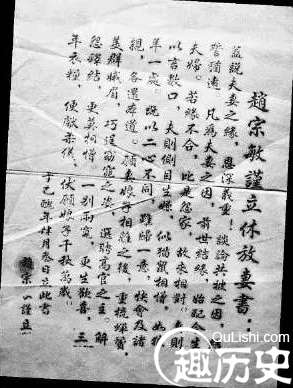 趙宗敏謹立休放妻書：
蓋說夫妻之緣，恩深義重！談論共枕之因，
誓誦遠。凡為夫妻之因，前世結緣，始配今生
夫婦。若緣不合，比是怨家，故來相對。妻則
以言數口，夫則側目生嫌，似貓鼠相憎，如狼
羊一處。既以二心不同，難歸一意，快會及諸
親，各還本道。願妻娘子相離之後，重梳蟬鬢，
美群娥眉，巧逞窈窕之姿，選聘高官之主。解
怨釋結，更莫相憎。一別兩寬，更生歡喜。三
年衣糧，便獻柔儀。伏願娘子千秋萬歲。
年 月叁日立此書
趙宗 謹立
QuLishi.com
趣历史